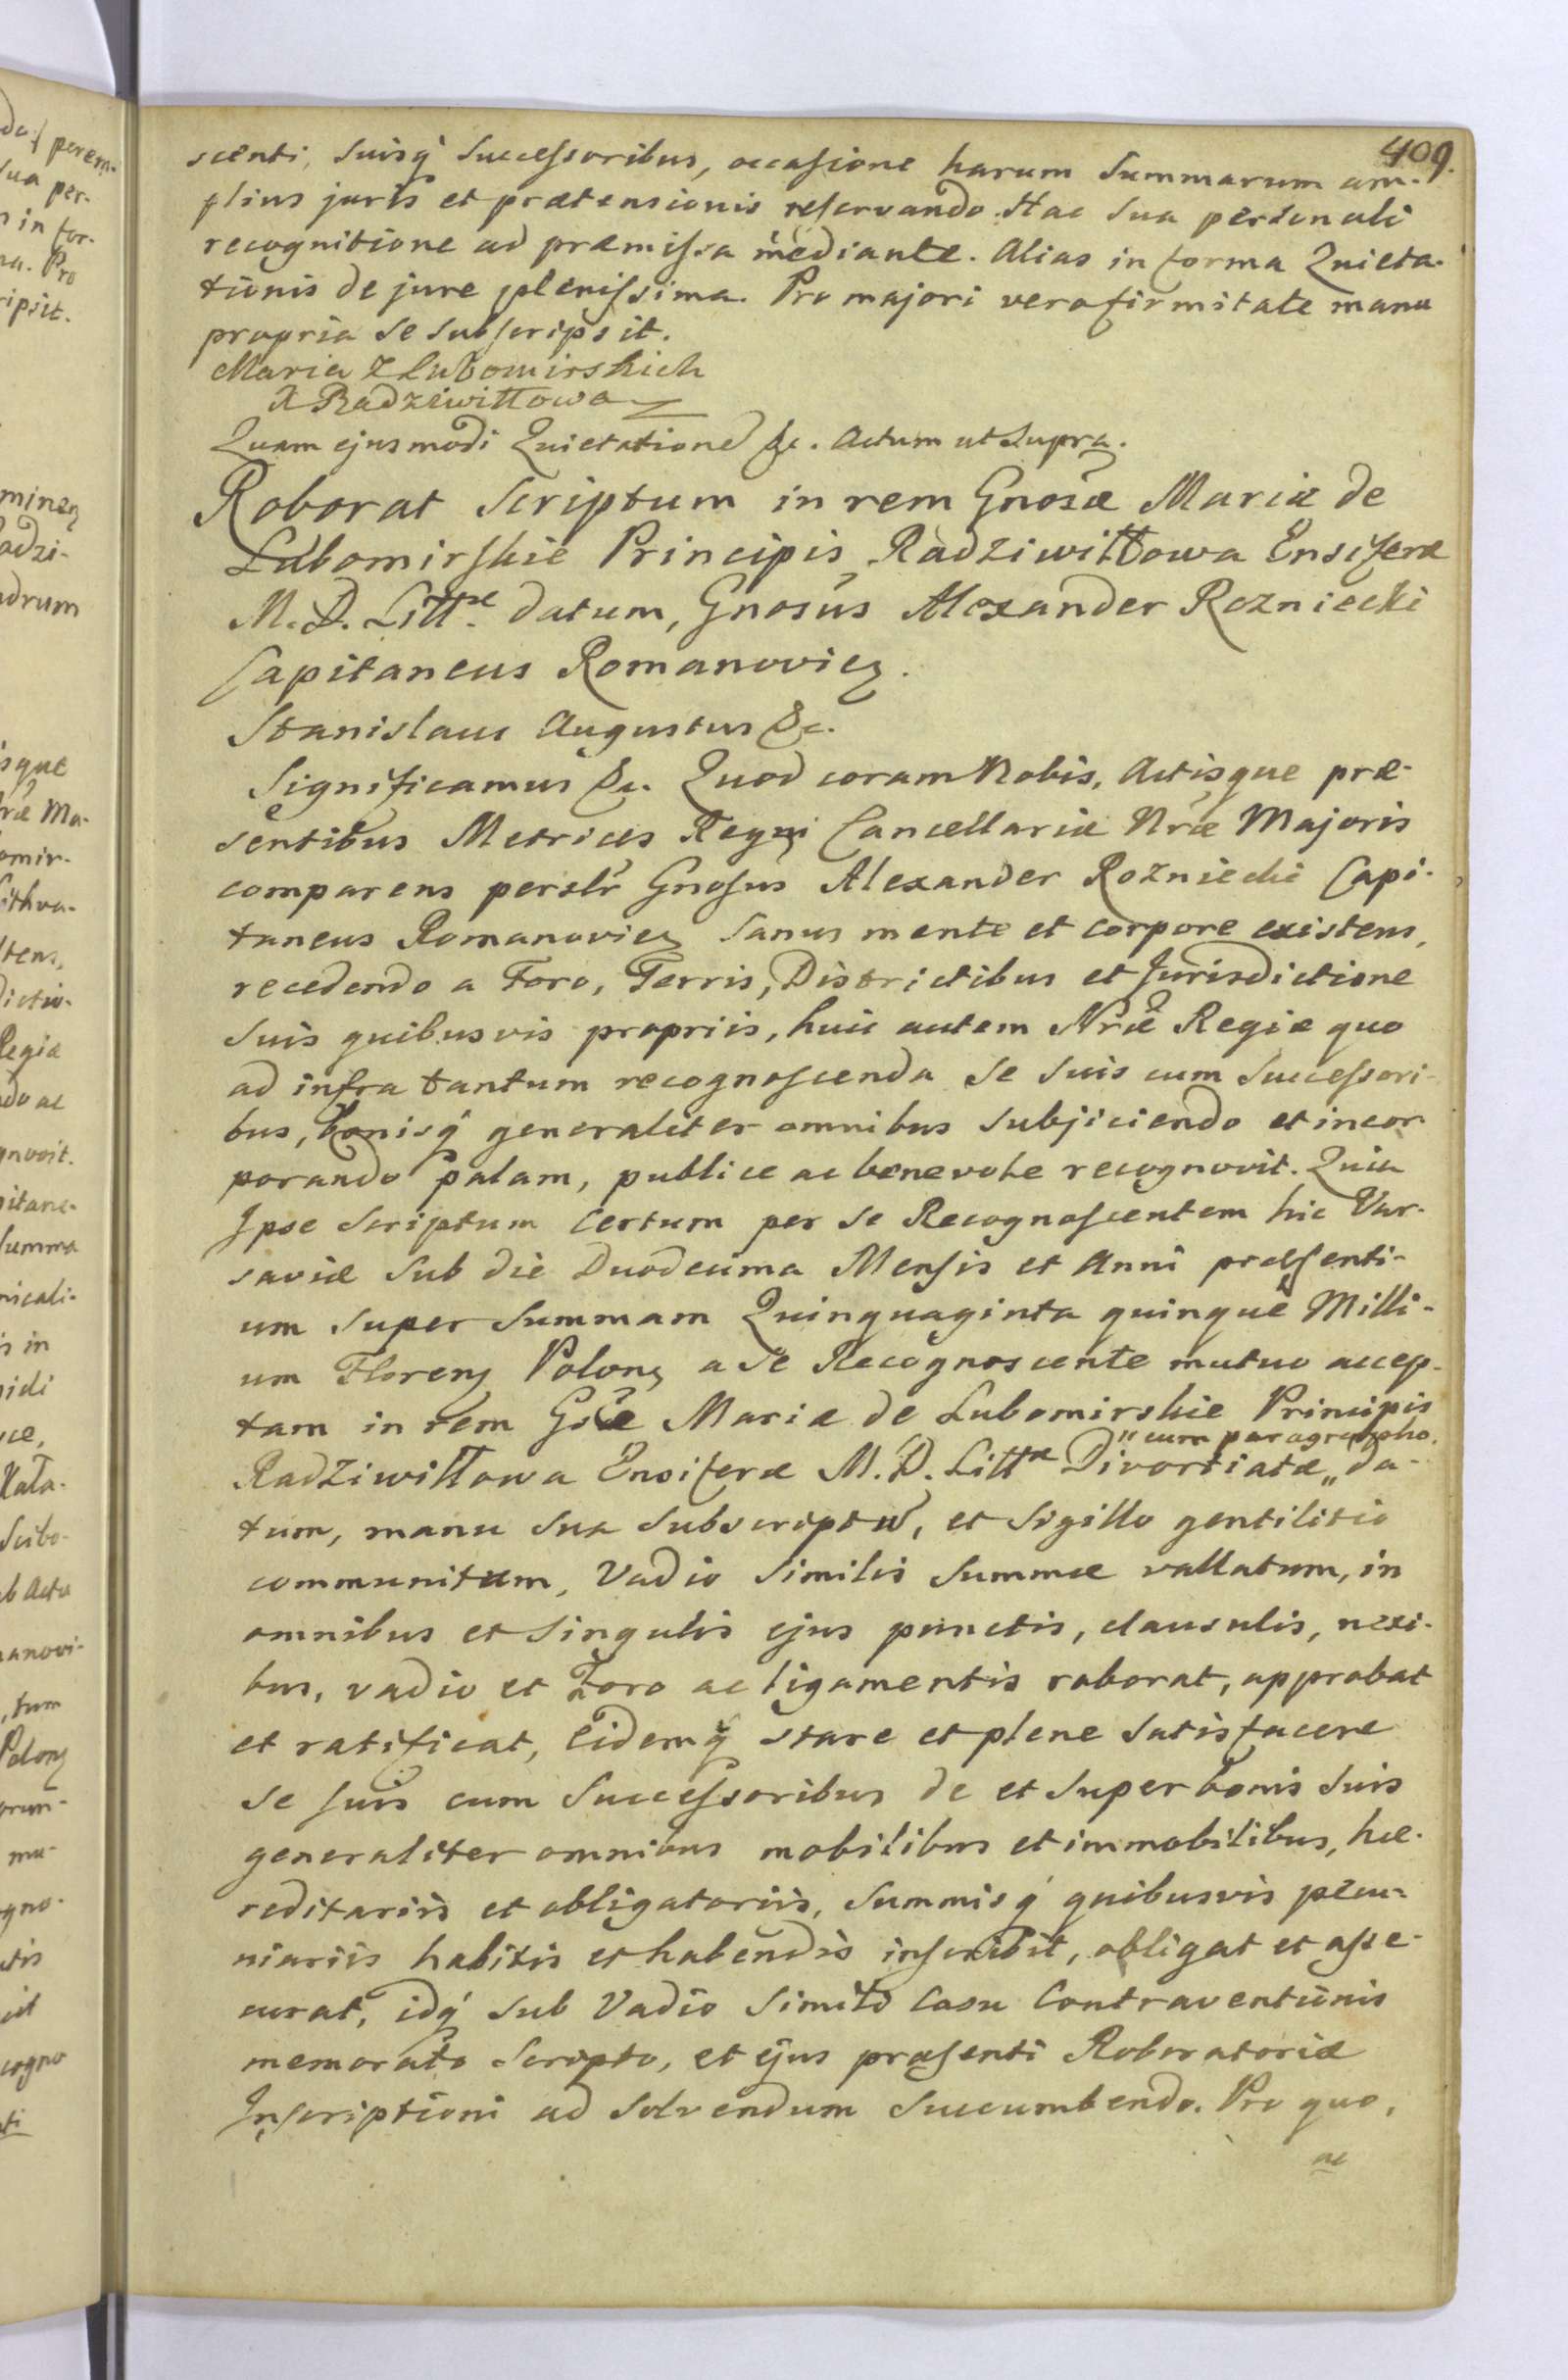 409.
scenti, suisq́ Successoribus, occasione harum Summarum am-
plius juris et prætensionis reservando. Hac sua personali
recognitione ad præmissa mediante. Alias in forma Quieta-
tionis de jure plenissima. Pro majori vero firmitate manu
propria se subscripsit.
Maria z Lubomirskich
X Radziwiłłowa
Quam ejusmodi Quietationē &c. Actum ut supra.
Roborat Scriptum in rem Gnosæ Mariæ de
Lubomirskie Principis Radziwiłłowa Ensiferæ
M. D. Littæ. datum, Gnosus Alexander Rozniecki
Capitaneus Romanovien.
Stanislaus Augustus &c.
Significamus &c. Quod coram Nobis, Actisque præ-
sentibus Metrices Regni Cancellariæ Nræ Majoris
comparens personlr Gnosus Alexander Rożniecki Capi-
taneus Romanovien sanus mente et corpore existens,
recedendo a Foro, Terris, Districtibus et Jurisdictione
suis quibusvis propriis, huic autem Nræ Regiæ quo
ad infra tantum recognoscenda se suis cum successori-
bus, bonisq́ generaliter omnibus subjiciendo et incor
porando palam, publice ac benevole recognovit. Quia
Ipse Scriptum certum per se Recognoscentem hic Var-
saviæ sub die Duodecima Mensis et Anni præsenti-
um super Summam Quinquaginta quinque Milli-
um Floren Polon a se Recognoscente mutuo accep-
tam in rem Gsæ Mariæ de Lubomirskie Principis
" cum paragrapho.
Radziwiłłowa Ensiferæ M. D. Littæ Divortiatæ „ da-
tum, manu sua subscriptū, et Sigillo gentilitio
communitum, Vadio similis summæ vallatum, in
omnibus et singulis ejus punctis, clausulis, nexi-
bus, vadio et Foro ac ligamentis roborat, approbat
et ratificat, Eidemq́ stare et plene satisfacere
se suis cum Successoribus de et super bonis suis
generaliter omnibus mobilibus et immobilibus, hæ-
reditariis et obligatoriis, summisq́ quibusvis pecu-
niariis habitis et habendis inscribit, obligat et asse-
curat, idq́ sub Vadio simili Casu Contraventionis
memorato Scripto, et ejus præsenti Roboratoriæ
Inscriptioni ad solvendum succumbendo. Pro quo,
ac